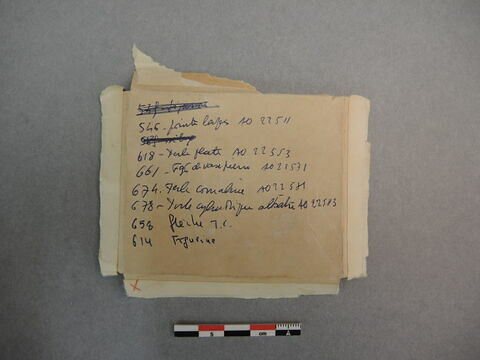 546 - pointe lapis AO 22511
618 - Perle plate AO 22553
661 - Frgt de vase pierre AO 22571
674. Perle cornaline AO 22581
678 - Perle cylindrique albâtre AO 22583
653 flèche T.C.
614 Figurine
X
5 cm A